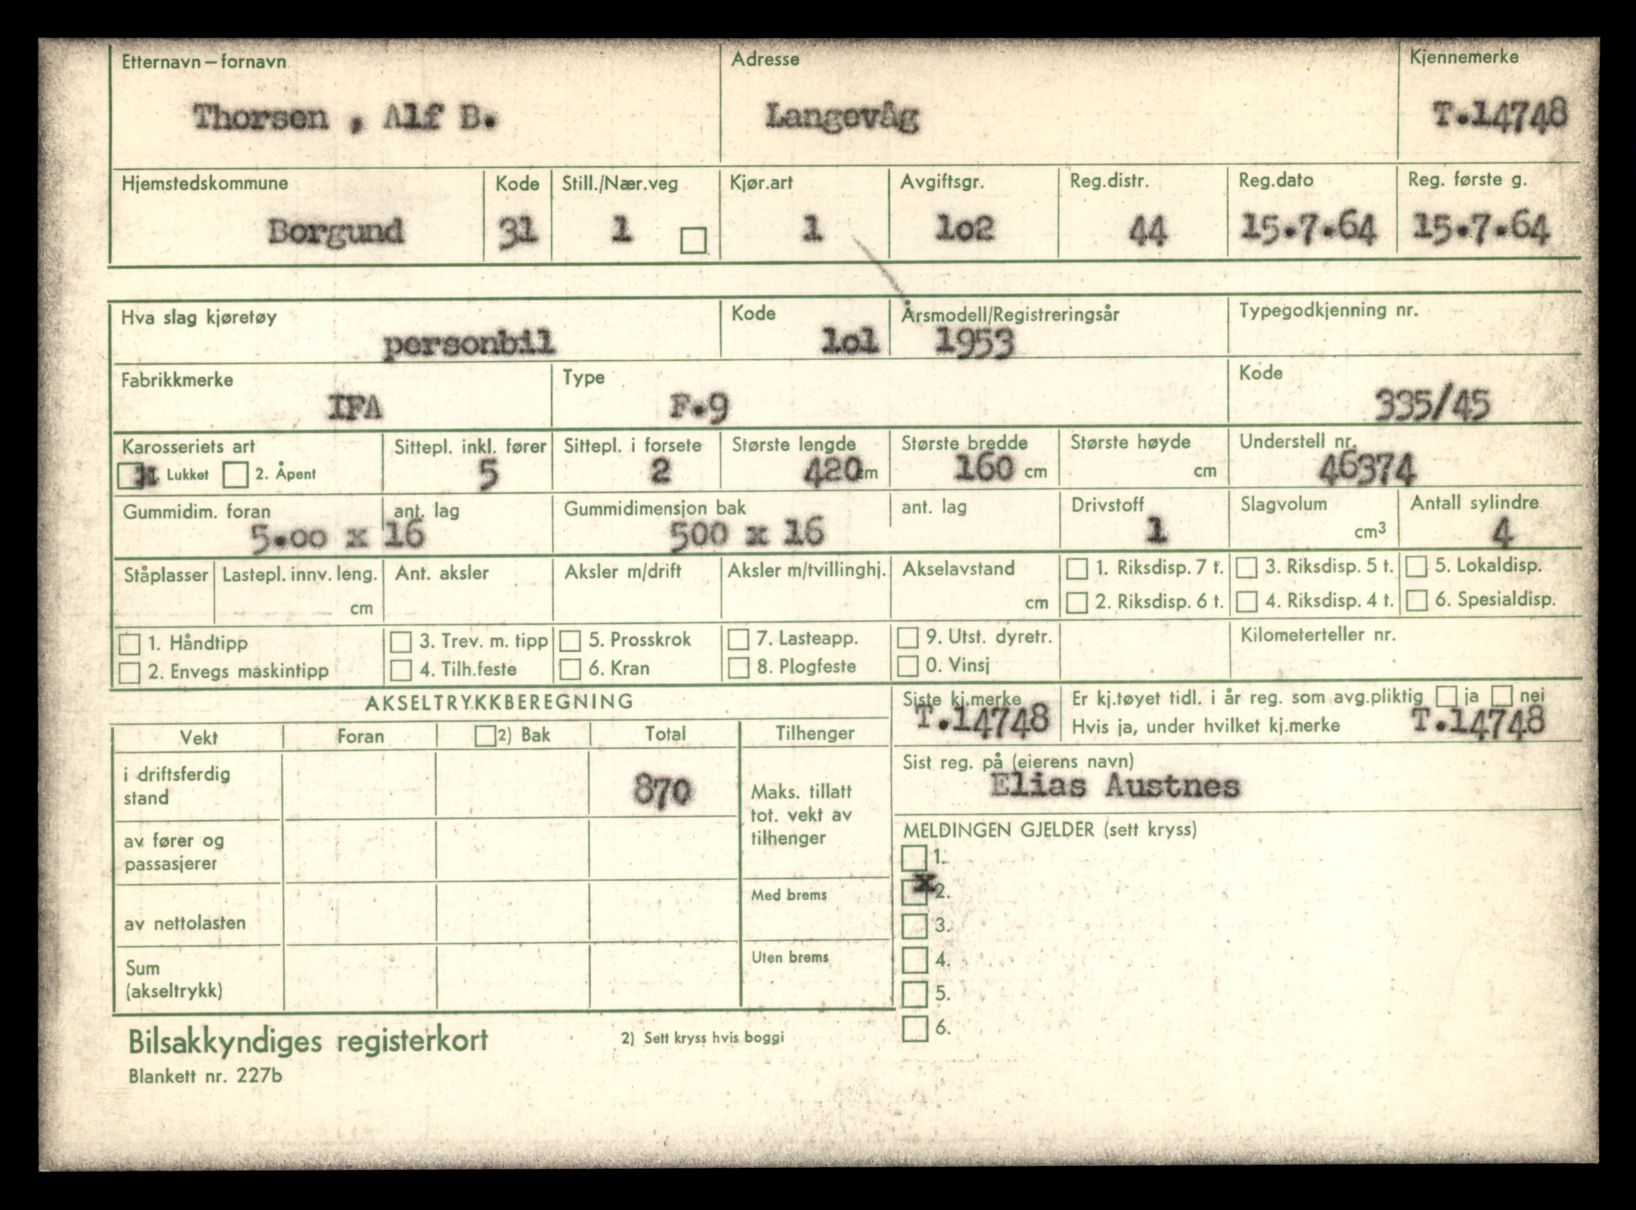 Etternavn—fornavn Adresse Kjennemerke
Thorsen , Alf B. Langevåg T.14748
Hjemstedskommune Kode Still./Nær.veg Kjør.art Avgiftsgr. Reg.distr. Reg.dato Reg. første g.
Borgund 31 1 1 1o2 44 15.7.64 15.7.64
Hva slag kjøretøy Kode Årsmodell/Registreringsår Typegodkjenning nr.
personbil 1o1 1953
Fabrikkmerke Type Kode
IFA F.9 335/45
Karosseriets art Sittepl. inkl. fører Sittepl. i forsete Største lengde Største bredde Største høyde Understell nr.
Lukket 2. Åpent 5 2 420 cm 160 cm cm 46374
Gummidim. foran ant. lag Gummidimensjon bak ant. lag Drivstoff Slagvolum Antall sylindre
5.oo x 16 500 x 16 1 cm3 4
Ståplasser Lastepl. innv. leng. Ant. aksler Aksler m/drift Aksler m/tvillinghj. Akselavstand 1. Riksdisp. 7 t. 3. Riksdisp. 5 t. 5. Lokaldisp.
cm cm 2. Riksdisp. 6 t. 4. Riksdisp. 4 t. 6. Spesialdisp.
1. Håndtipp 3. Trev. m. tipp 5. Prosskrok 7. Lasteapp. 9. Utst. dyretr. Kilometerteller nr.
2. Envegs maskintipp 4. Tilh.feste 6. Kran 8. Plogfeste 0. Vinsj
AKSELTRYKKBEREGNING Siste kj.merke Er kj.tøyet tidl. i år reg. som avg.pliktig ja nei
T.14748 Hvis ja, under hvilket kj.merke T.14748
Vekt Foran 2) Bak Total Tilhenger
Sist reg. på (eierens navn)
Elias Austnes
i driftsferdig
stand 870 Maks. tillatt
tot. vekt av
tilhenger
MELDINGEN GJELDER (sett kryss)
av fører og
passasjerer
1.
x 2.
Med brems
av nettolasten 3.
Uten brems 4.
Sum
(akseltrykk) 5.
6.
Bilsakkyndiges registerkort 2) Sett kryss hvis boggi
Blankett nr. 227b